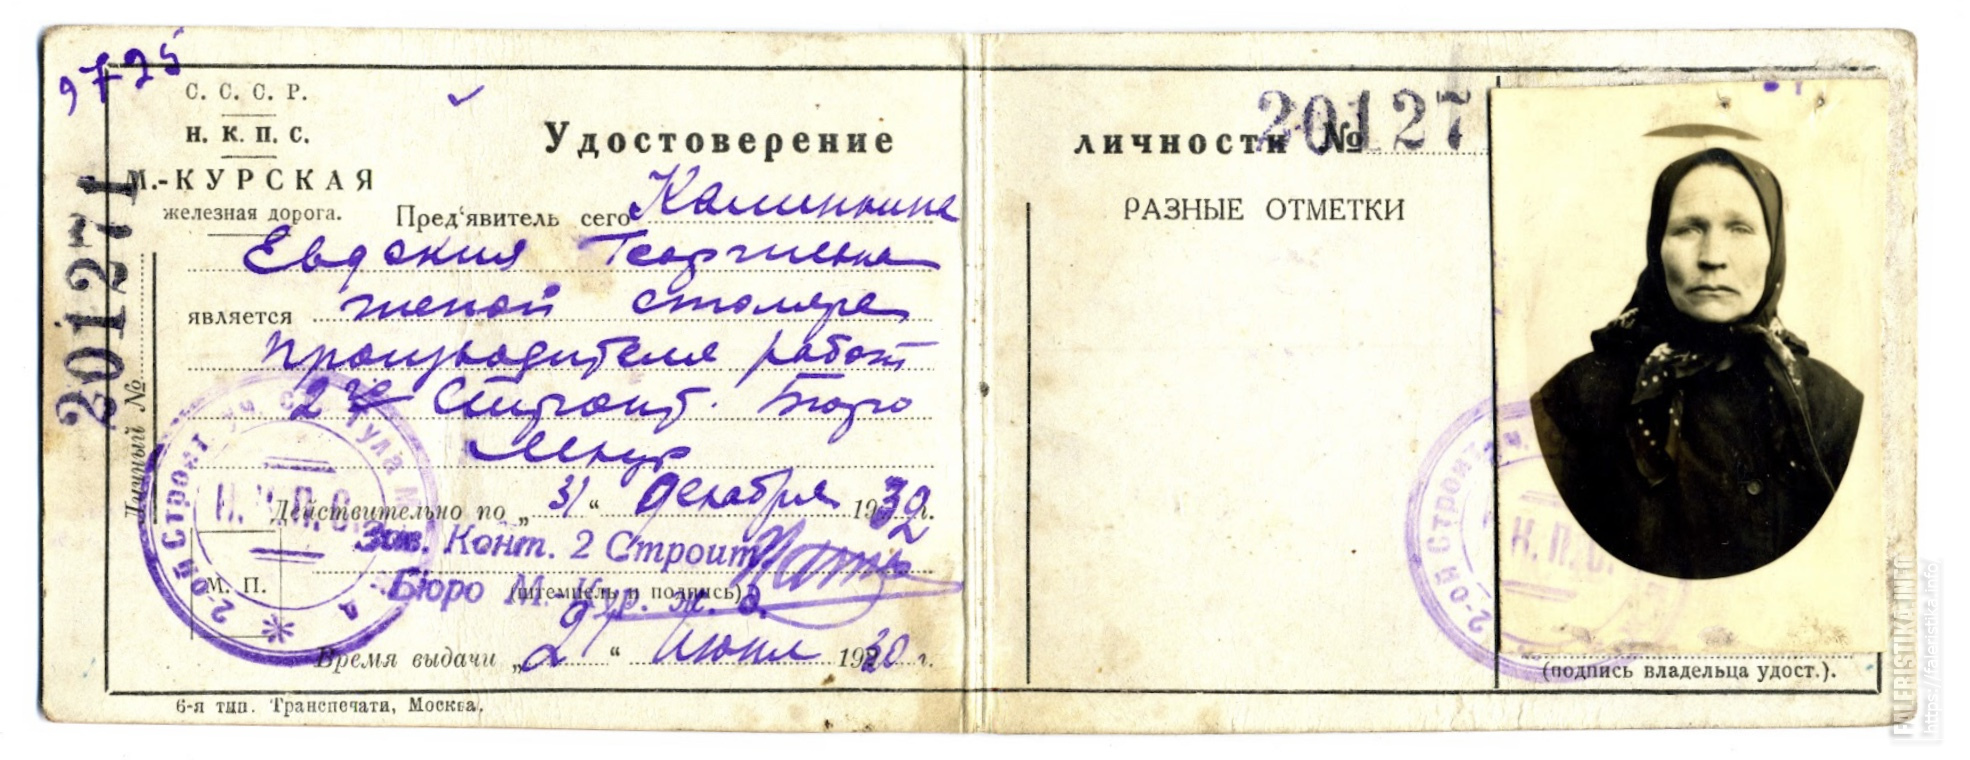 9725
С. С. С. Р.
Н. К. П. С.
М.-КУРСКАЯ
железная дорога.
201271
Личный №
Удостоверение
Пред'явитель сего Калинкина
Евдокия Георгиевна
является женой столяра
производителя работ
2й Строит. Бюро
Мкур
Действительно по „31“ декабря 1932 г.
Зав. Конт. 2 Строит.
Бюро М.-Кур. ж. д.
М. П.
(штемпель и подпись)
Время выдачи „2“ июня 1930 г.
6-я тип. Транспечати, Москва.
2-ой Строит. Тула М
Н.К.П.С.
личности № 20127
РАЗНЫЕ ОТМЕТКИ
2-ой Строит.
Н.К.П.С.
(подпись владельца удост.).
FALERISTIKA.INFO
https://faleristika.info